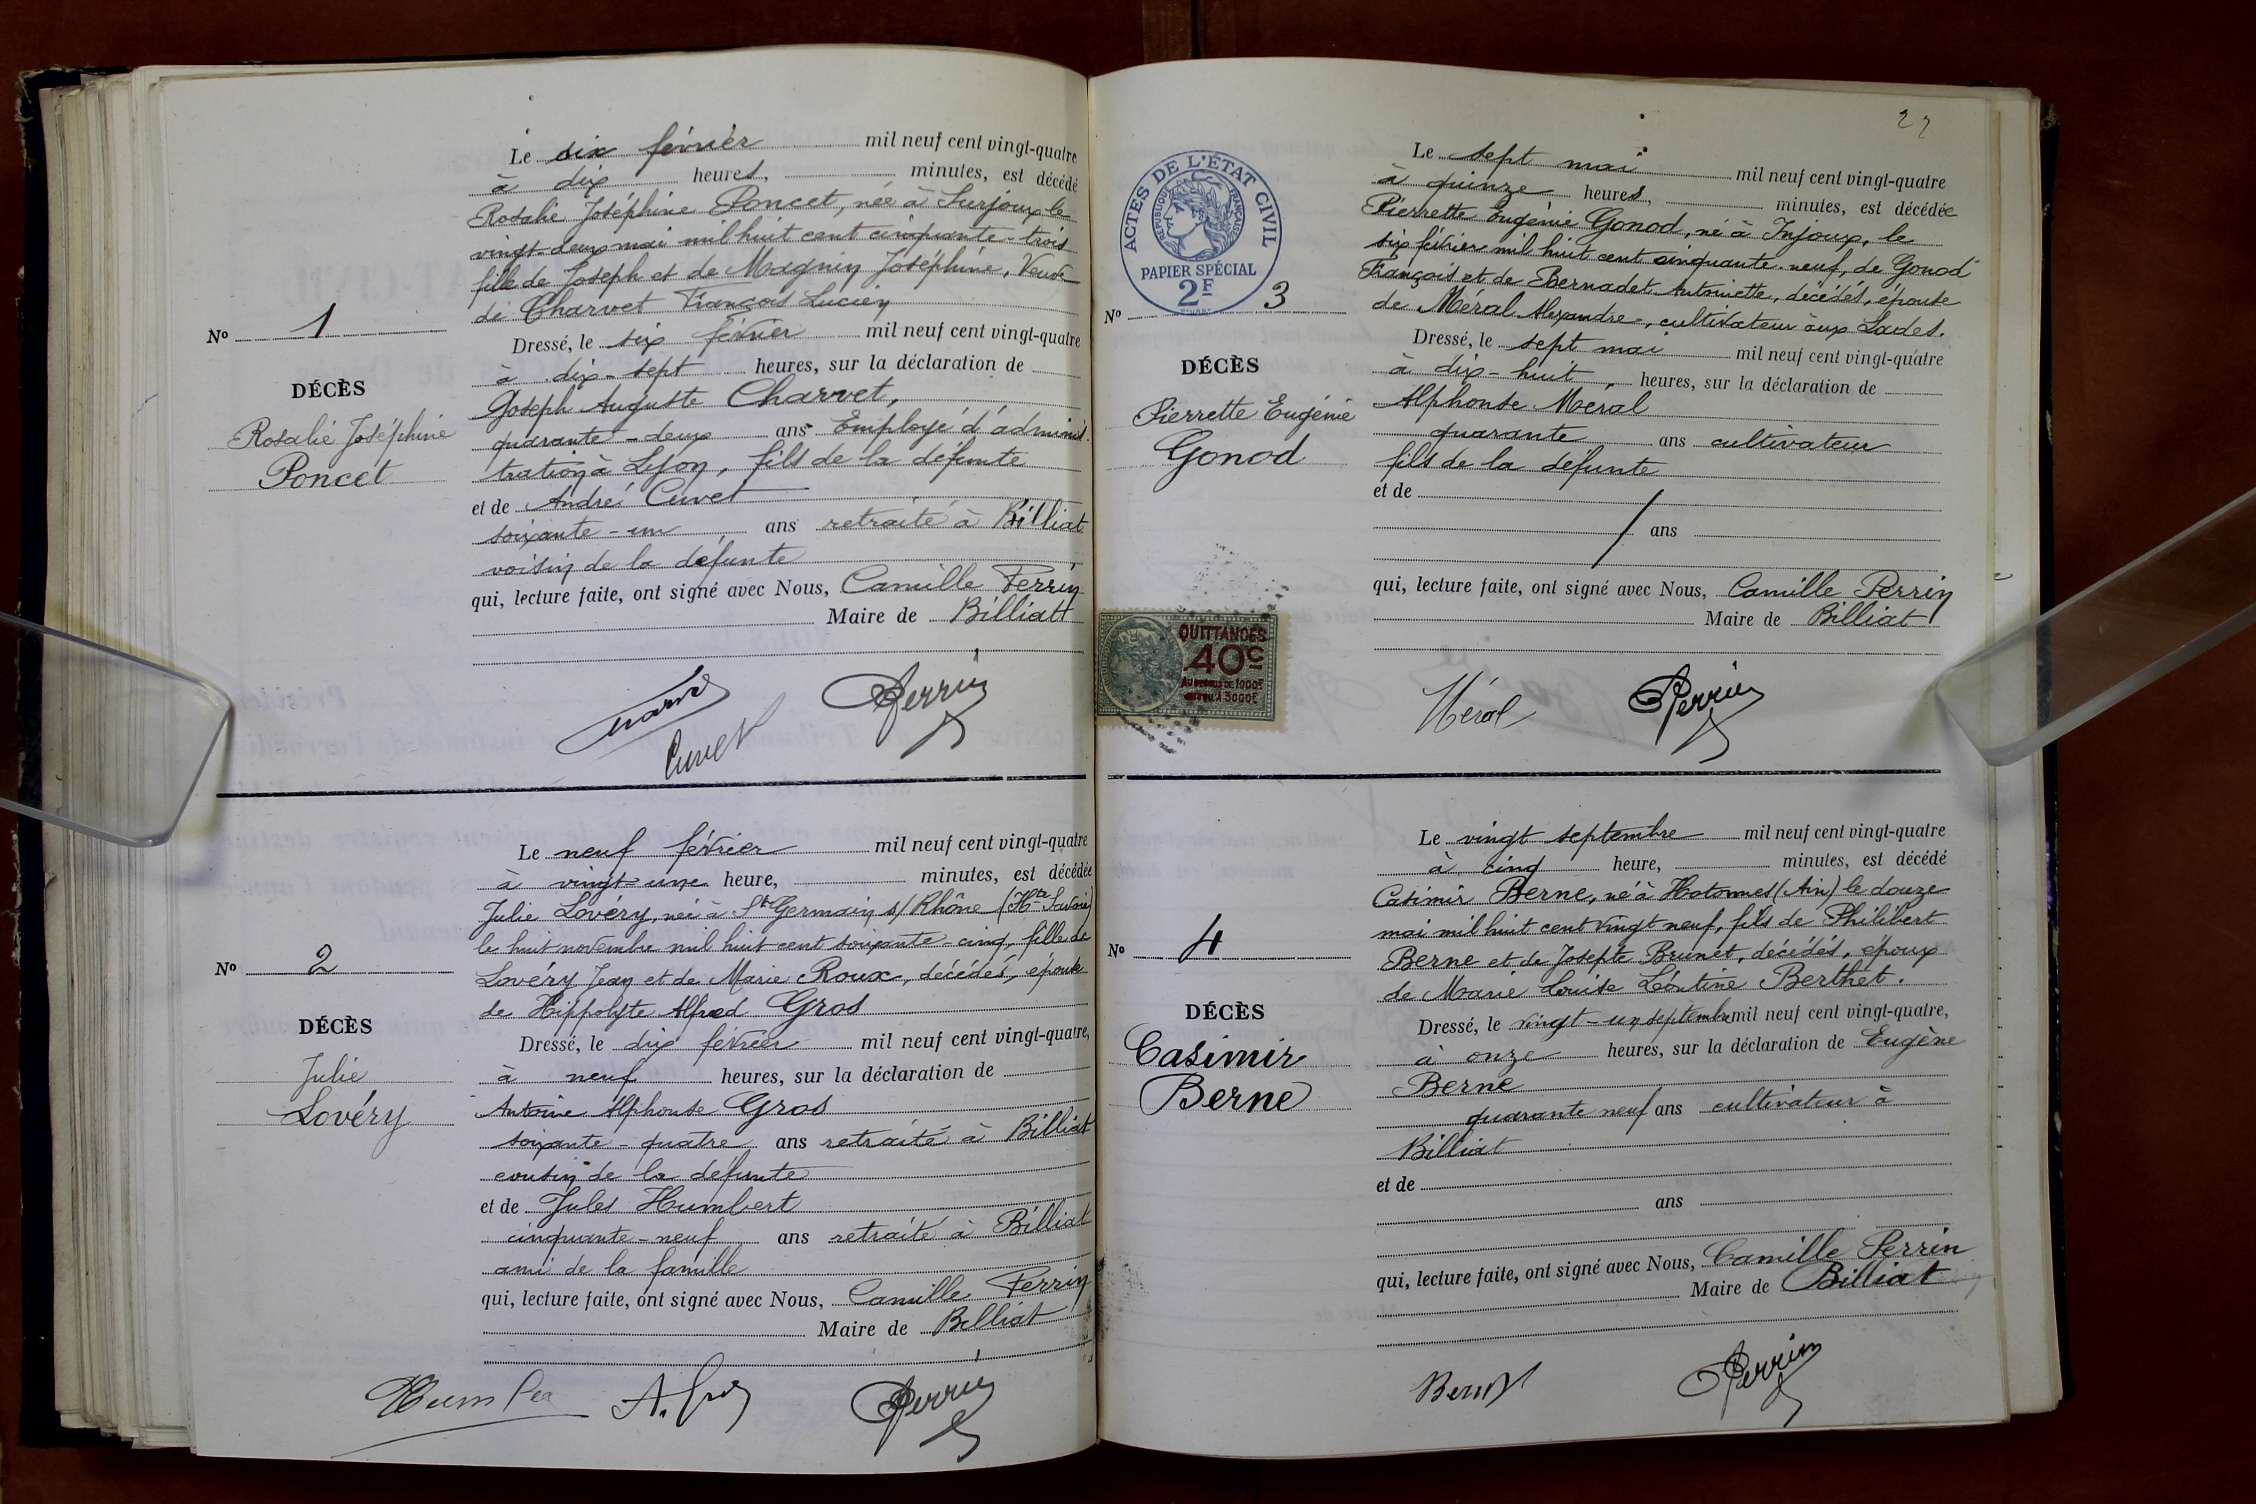 Le six février mil neuf cent vingt-quatre
à dix heures, minutes, est décédé
Rosalie Joséphine Poncet, née à Surjoux le
vingt-deux mai mil huit cent cinquante-trois
fille de Joseph et de Magnin Joséphine, Veuve
de Charvet François Lucien
No 1
DÉCÈS
Rosalie Joséphine
Poncet
Dressé, le six février mil neuf cent vingt-quatre
à dix-sept heures, sur la déclaration de
Joseph Auguste Charvet,
quarante-deux ans Employé d'adminis
tration à Lyon, fils de la défunte
et de André Cuvet
soixante-un ans retraité à Billiat
voisin de la défunte
qui, lecture faite, ont signé avec Nous, Camille Perrin
Maire de Billiat
Perrin
Cuvet
Le neuf février mil neuf cent vingt-quatre
à vingt-une heure, minutes, est décédée
Julie Lovéry, née à St Germain s/ Rhône (Hte Savoie)
le huit novembre mil huit cent soixante-cinq, fille de
Lovéry Jean et de Marie Roux, décédés, épouse
de Hippolyte Alfred Gros
No 2
DÉCÈS
Julie
Lovéry
Dressé, le dix février mil neuf cent vingt-quatre,
à neuf heures, sur la déclaration de
Antoine Alphonse Gros
soixante-quatre ans retraité à Billiat
cousin de la défunte
et de Jules Humbert
cinquante-neuf ans retraité à Billiat
ami de la famille
qui, lecture faite, ont signé avec Nous, Camille Perrin
Maire de Billiat
A. Gros Perrin
27
ACTES DE L'ÉTAT CIVIL
RÉPUBLIQUE FRANÇAISE
PAPIER SPÉCIAL
2F
Le sept mai mil neuf cent vingt-quatre
à quinze heures, minutes, est décédée
Pierrette Eugénie Gonod, né à Injoux, le
six février mil huit cent cinquante-neuf, de Gonod
François et de Bernadet Antoinette, décédés, épouse
de Méral Alexandre, cultivateur aux Lades.
No 3
DÉCÈS
Pierrette Eugénie
Gonod
Dressé, le sept mai mil neuf cent vingt-quatre
à dix-huit, heures, sur la déclaration de
Alphonse Meral
quarante ans cultivateur
fils de la défunte
et de
ans
qui, lecture faite, ont signé avec Nous, Camille Perrin
Maire de Billiat
QUITTANCES
40c
AU DESSUS DE 1000F
JUSQU'À 3000F
Méral Perrin
Le vingt septembre mil neuf cent vingt-quatre
à cinq heure, minutes, est décédé
Casimir Berne, né à Hotonnes (Ain) le douze
mai mil huit cent vingt neuf, fils de Philibert
Berne et de Josepte Brunet, décédés, époux
de Marie Louise Léontine Berthet.
No 4
DÉCÈS
Casimir
Berne
Dressé, le vingt-un septembre mil neuf cent vingt-quatre,
à onze heures, sur la déclaration de Eugène
Berne
quarante neuf ans cultivateur à
Billiat
et de
ans
qui, lecture faite, ont signé avec Nous, Camille Perrin
Maire de Billiat
Perrin